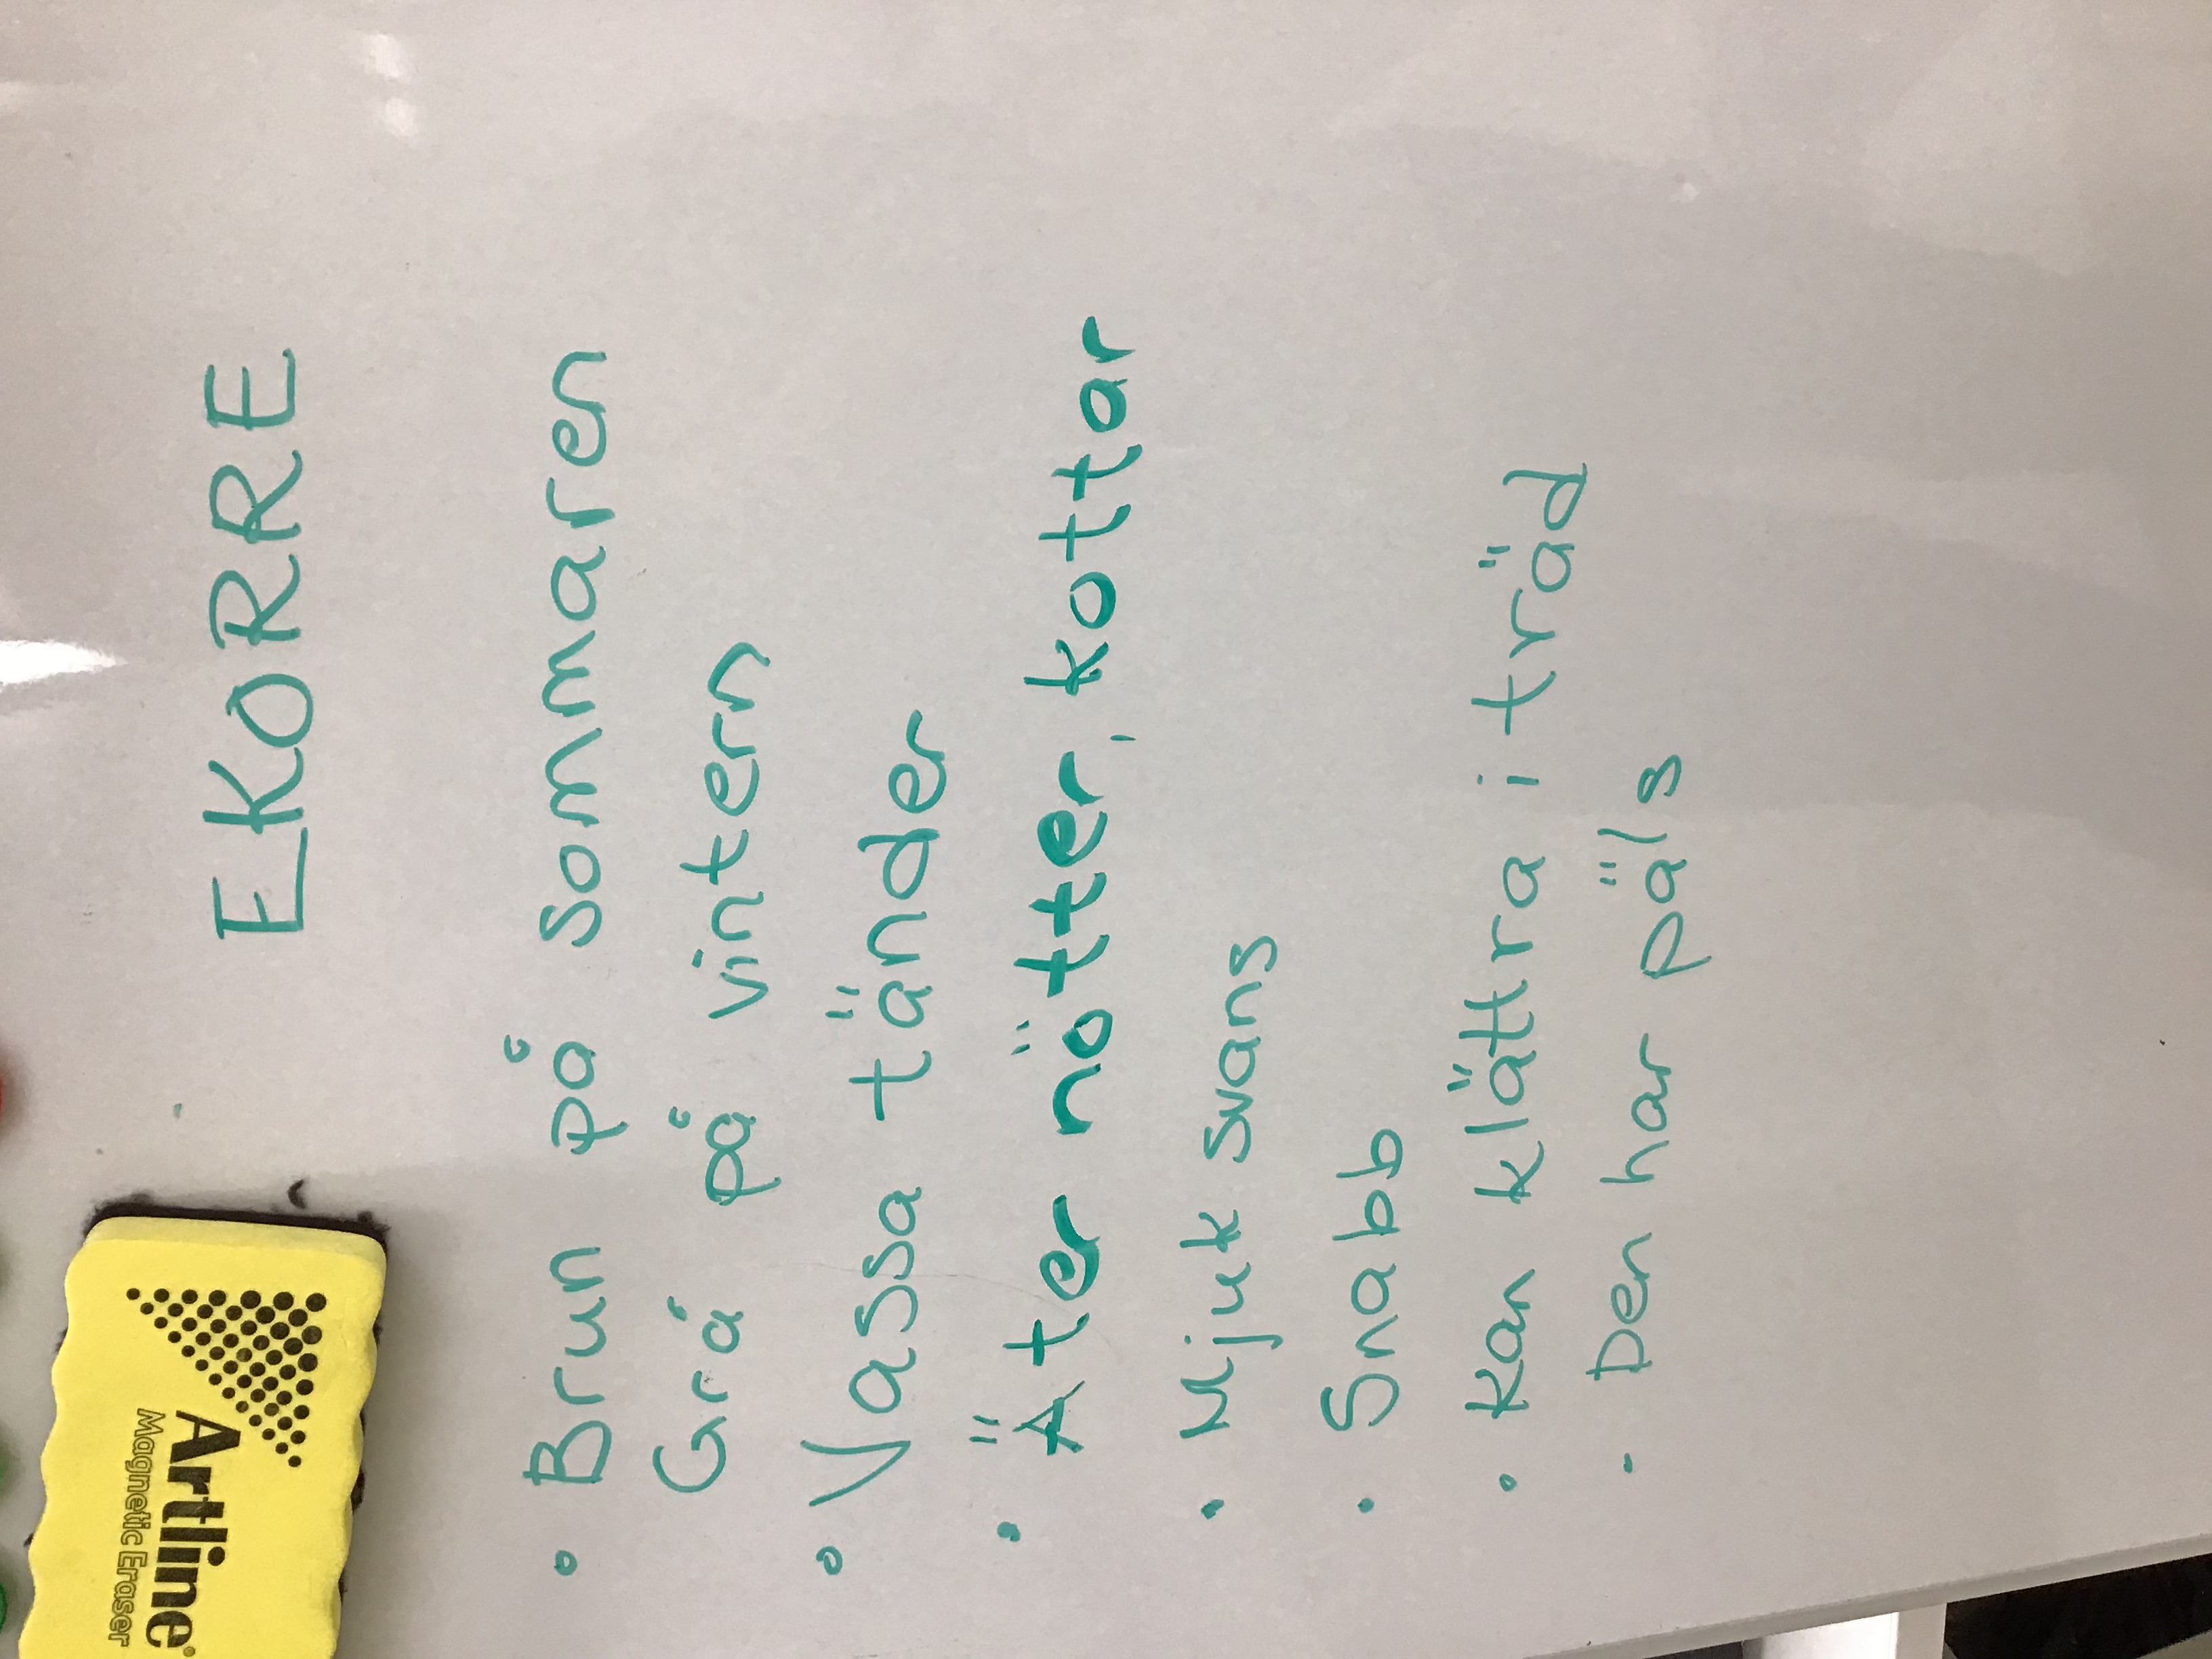 EKORRE
• Brun på sommaren
Grå på vintern
• Vassa tänder
• Äter nötter, kottar
• Mjuk svans
• Snabb
• Kan klättra i träd
• Den har päls
Artline
Magnetic Eraser